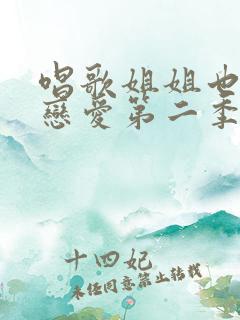 唱歌姐姐也
戀愛第二季
十四妃
未经同意禁止转载